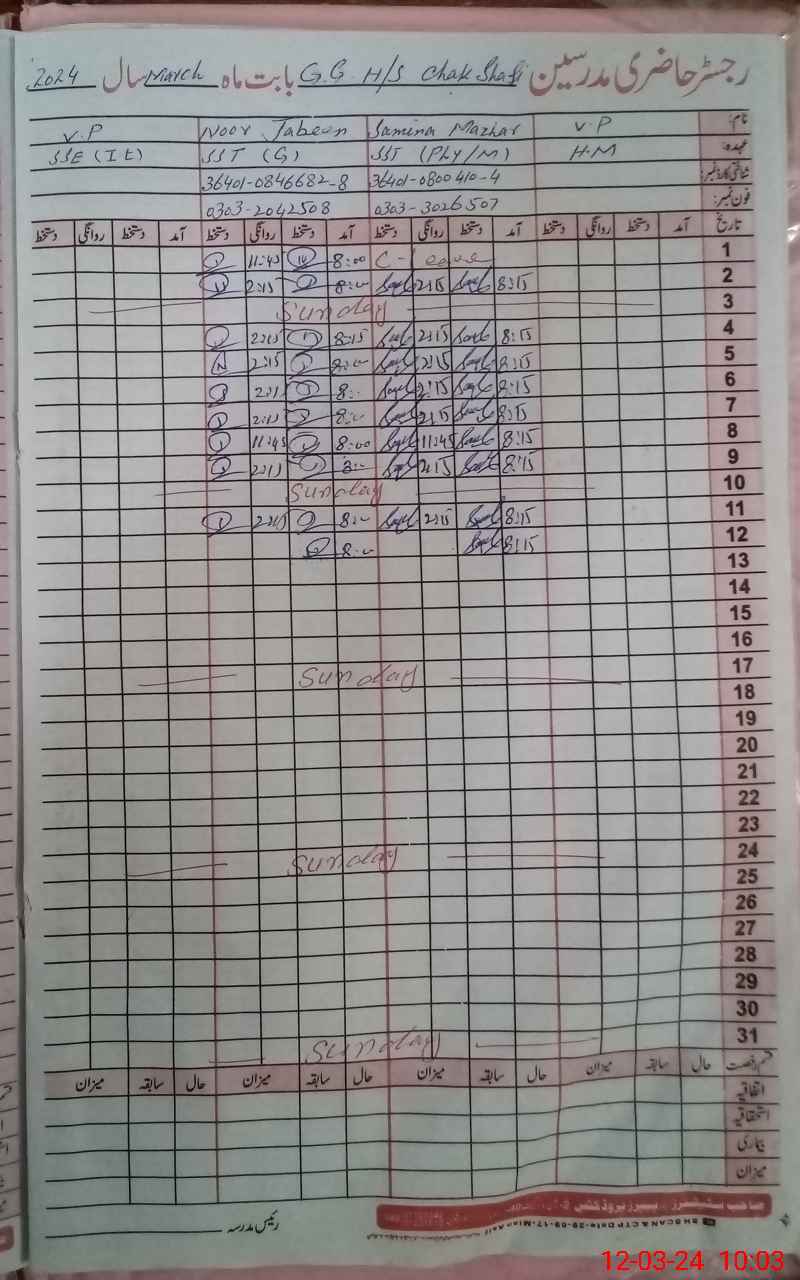 رجسٹر حاضری مدرسین G.G. H/S Chak Shafi بابت ماہ March سال 2024
نام: V.P Samina Mazhar Noor Jabeen V.P
عہدہ: H.M SST (Phy/M) SST (G) SSE (It)
شناختی کارڈ نمبر: 36401-0800410-4 36401-0846682-8
فون نمبر: 0303-3026507 0303-2042508
تاریخ آمد دستخط روانگی دستخط آمد دستخط روانگی دستخط آمد دستخط روانگی دستخط آمد دستخط روانگی دستخط
1 C-leave 8:00 11:45
2 8:15 2:15 8:00 2:15
3 Sunday
4 8:15 2:15 8:15 2:15
5 8:15 2:15 8:00 2:15
6 8:15 2:15 8:00 2:15
7 8:15 2:15 8:00 2:15
8 8:15 11:45 8:00 11:45
9 8:15 2:15 8:00 2:15
10 Sunday
11 8:15 2:15 8:00 2:15
12 8:15 8:00
13
14
15
16
17 Sunday
18
19
20
21
22
23
24 Sunday
25
26
27
28
29
30
31 Sunday
قسم رخصت حال سابقہ میزان حال سابقہ میزان حال سابقہ میزان حال سابقہ میزان
اتفاقیہ
استحقاقیہ
بیماری
میزان
رئیس مدرسہ
12-03-24 10:03